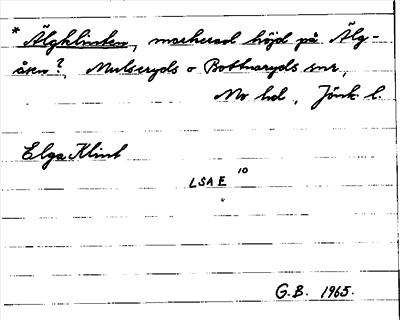 * Älgklinten, markerad höjd på Älg-
åsen?, Mulseryds o Bottnaryds snr,
Mo hd, Jönk. l.
Elga Klint
LSA E 10
"
G.B. 1965.